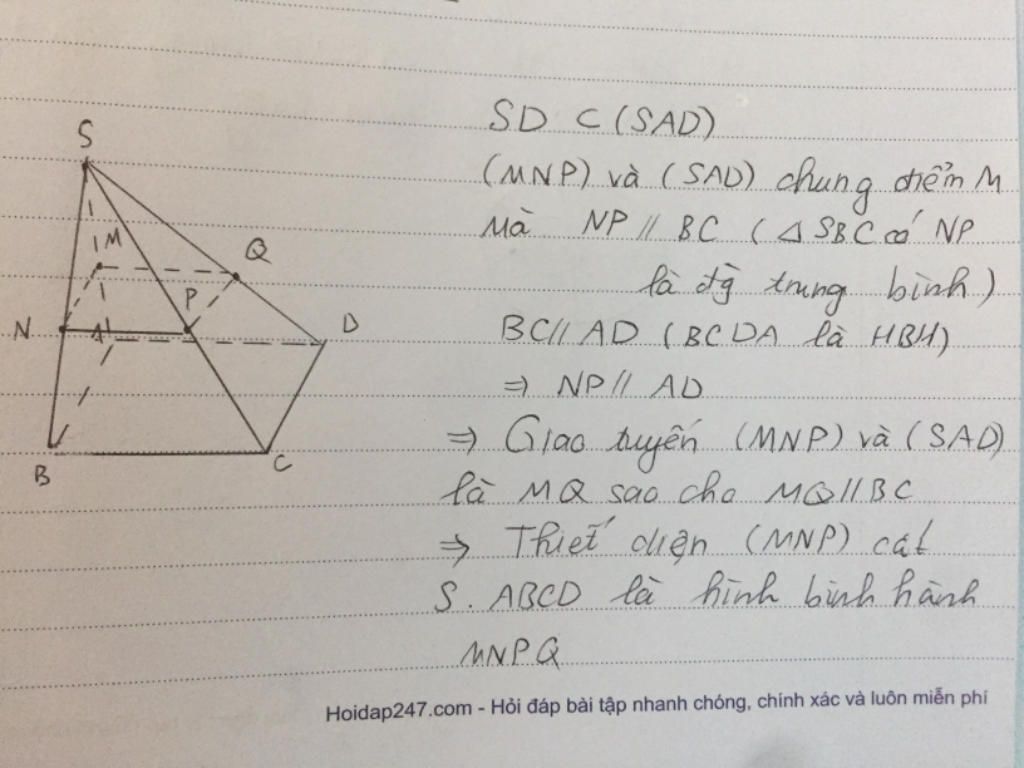 S
M
Q
P
N
A
D
B
C
SD ⊂ (SAD)
(MNP) và (SAD) chung điểm M
Mà NP // BC (△ SBC có NP
là đg̀ trung bình)
BC // AD (BCDA là HBH)
⇒ NP // AD
⇒ Giao tuyến (MNP) và (SAD)
là MQ sao cho MQ // BC
⇒ Thiết diện (MNP) cắt
S. ABCD là hình bình hành
MNPQ
Hoidap247.com - Hỏi đáp bài tập nhanh chóng, chính xác và luôn miễn phí